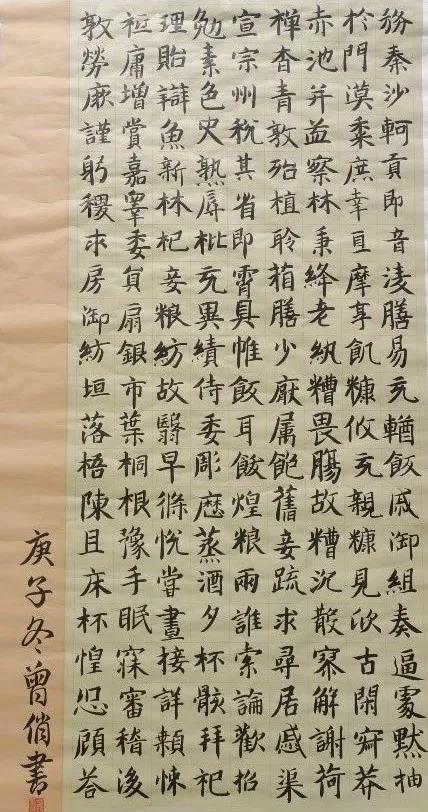 務秦沙軻貢即音淩膳易充輶飯戚御組奏逼處默抽
於門漠黍庶幸亘摩享飢糠攸充親糠見欣古閑莽
赤池並益察林秉絳老紈糟畏腸故糟沉散寥解謝荷
禪杳青敦殆植聆箱膳少厭属飽舊妾疏求尋居慼渠
宣宗州稅其省即霄具惟飯耳飯煌粮兩誰索論歡招
勉素色史熟辱枇充異績侍委彫歷蒸酒夕杯骸拜杞
理貽辯魚新林杞妾粮紡故翳早條悅嘗晝接詳悚
祗庸增賞嘉委貟扇銀市葉桐根豫手眠寐審稽後
敦勞厥謹躬稷求房御紡垣落梧陳且床杯惶恐顧荅
庚子冬曾俏書